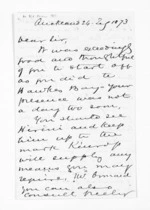 Auckland 26. 1873
Dear Sir,
It was exceedingly
good and thoughtful
of you to start off
as you did to
Hawkes Bay. Your
presence was not
a day too soon.
You should see
and keep
him up to the
mark
will supply any
money you may
require. Mr Ormond
You can also
consult freely